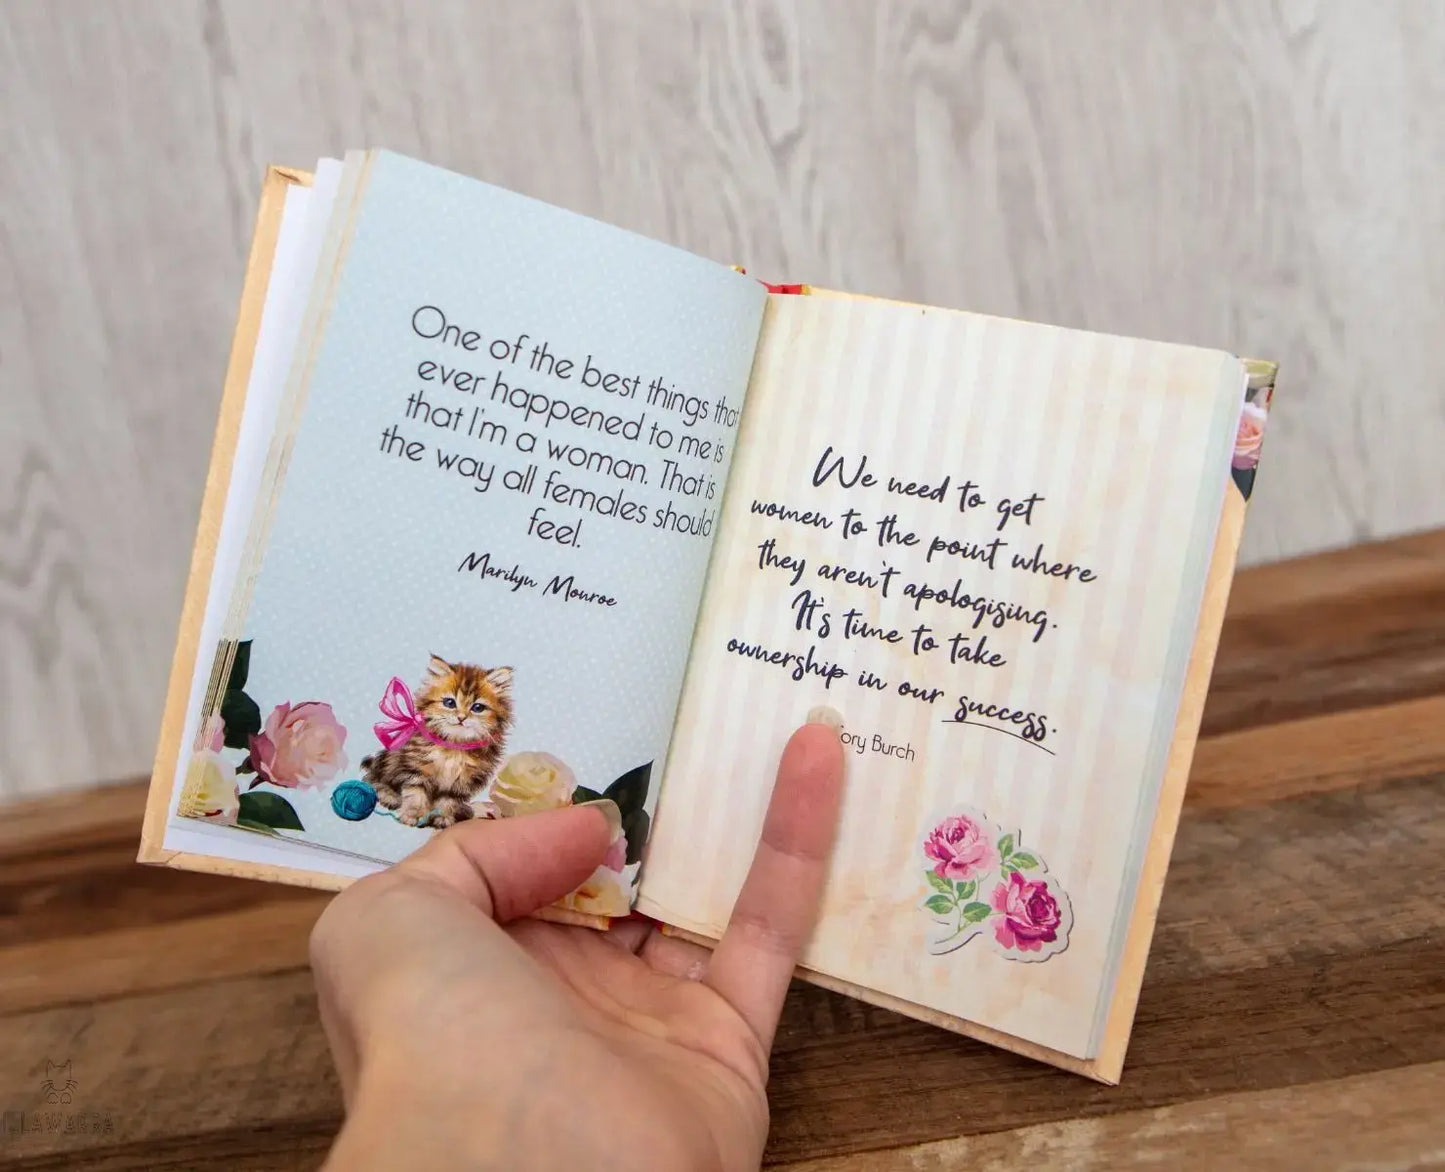 One of the best things that
ever happened to me is
that I'm a woman. That is
the way all females should
feel.
Marilyn Monroe
We need to get
women to the point where
they aren't apologising.
It's time to take
ownership in our success.
Tory Burch